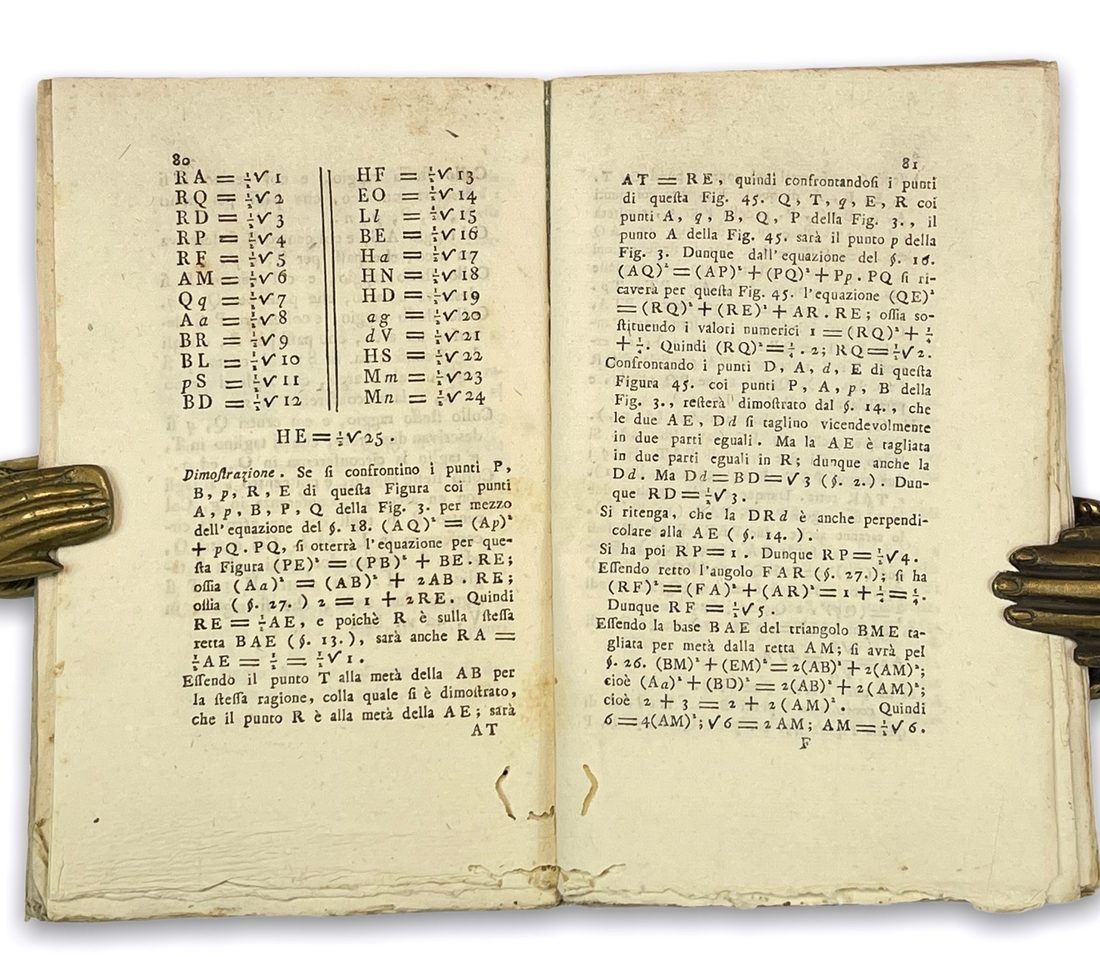 80
RA = ½√1
RQ = ½√2
RD = ½√3
RP = ½√4
RF = ½√5
AM = ½√6
Qq = ½√7
Aa = ½√8
BR = ½√9
BL = ½√10
pS = ½√11
BD = ½√12
HF = ½√13
EO = ½√14
Ll = ½√15
BE = ½√16
Ha = ½√17
HN = ½√18
HD = ½√19
ag = ½√20
dV = ½√21
HS = ½√22
Mm = ½√23
Mn = ½√24
HE = ½√25.
Dimoſtrazione. Se ſi confrontino i punti P,
B, p, R, E di queſta Figura coi punti
A, p, B, P, Q della Fig. 3. per mezzo
dell'equazione del §. 18. (AQ)² = (Ap)²
+ pQ. PQ, ſi otterrà l'equazione per que-
ſta Figura (PE)² = (PB)² + BE. RE;
oſſia (Aa)² = (AB)² + 2AB. RE;
oſſia (§. 27.) 2 = 1 + 2RE. Quindi
RE = ½AE, e poichè R è sulla ſteſſa
retta BAE (§. 13.), sarà anche RA =
½AE = ½ = ½√1.
Eſſendo il punto T alla metà della AB per
la ſteſſa ragione, colla quale ſi è dimoſtrato,
che il punto R è alla metà della AE; sarà
AT
81
AT = RE, quindi confrontandoſi i punti
di queſta Fig. 45. Q, T, q, E, R coi
punti A, q, B, Q, P della Fig. 3., il
punto A della Fig. 45. sarà il punto p della
Fig. 3. Dunque dall'equazione del §. 16.
(AQ)² = (AP)² + (PQ)² + Pp. PQ ſi ri-
caverà per queſta Fig. 45. l'equazione (QE)²
= (RQ)² + (RE)² + AR. RE; oſſia so-
ſtituendo i valori numerici 1 = (RQ)² + ¼
+ ¼. Quindi (RQ)² = ¼. 2; RQ = ½√2.
Confrontando i punti D, A, d, E di queſta
Figura 45. coi punti P, A, p, B della
Fig. 3., reſterà dimoſtrato dal §. 14., che
le due AE, Dd ſi taglino vicendevolmente
in due parti eguali. Ma la AE è tagliata
in due parti eguali in R; dunque anche la
Dd. Ma Dd = BD = √3 (§. 2.). Dun-
que RD = ½√3.
Si ritenga, che la DRd è anche perpendi-
colare alla AE (§. 14.).
Si ha poi RP = 1. Dunque RP = ½√4.
Eſſendo retto l'angolo FAR (§. 27.); ſi ha
(RF)² = (FA)² + (AR)² = 1 + ¼ = ⁵⁄₄.
Dunque RF = ½√5.
Eſſendo la base BAE del triangolo BME ta-
gliata per metà dalla retta AM; ſi avrà pel
§. 26. (BM)² + (EM)² = 2(AB)² + 2(AM)²;
cioè (Aa)² + (BD)² = 2(AB)² + 2(AM)²;
cioè 2 + 3 = 2 + 2(AM)². Quindi
6 = 4(AM)²; √6 = 2 AM; AM = ½√6.
F